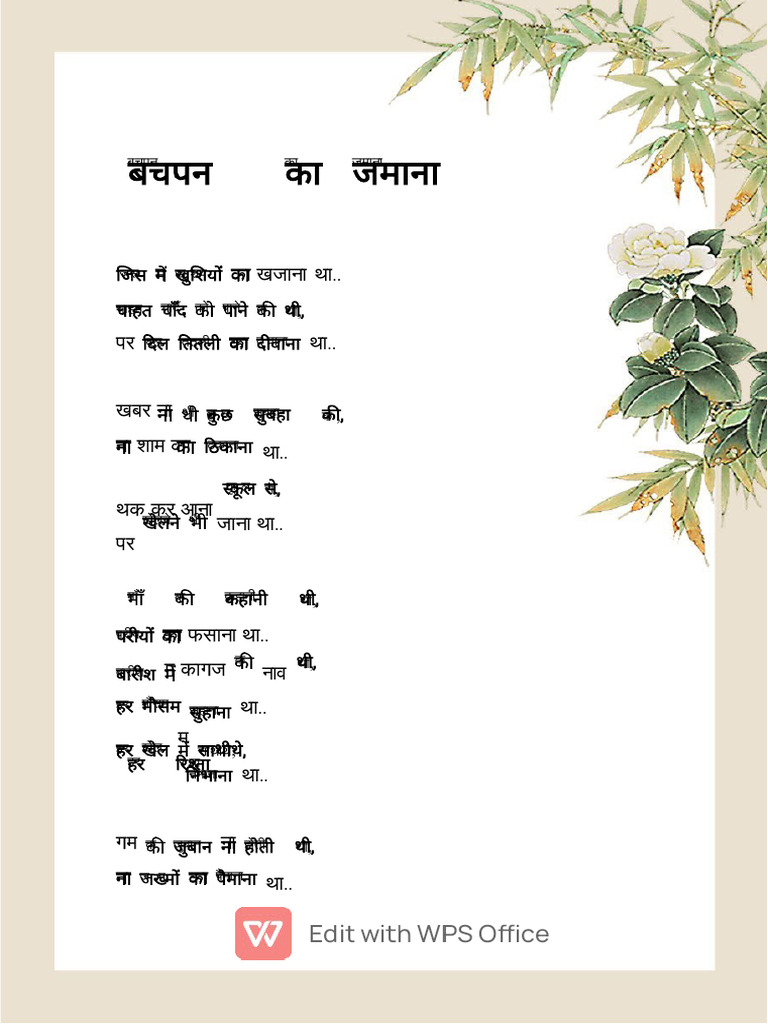 बचपन का जमाना
जिस में खुशियों का खजाना था..
चाहत चाँद को पाने की थी,
पर दिल तितली का दीवाना था..
खबर ना थी कुछ सुबहा की,
ना शाम का ठिकाना था..
थक कर आना स्कूल से,
पर खेलने भी जाना था..
माँ की कहानी थी,
परीयों का फसाना था..
बारीश में कागज की नाव थी,
हर मौसम सुहाना था..
हर खेल में साथी थे,
हर रिश्ता निभाना था..
गम की जुबान ना होती थी,
ना जख्मों का पैमाना था..
Edit with WPS Office